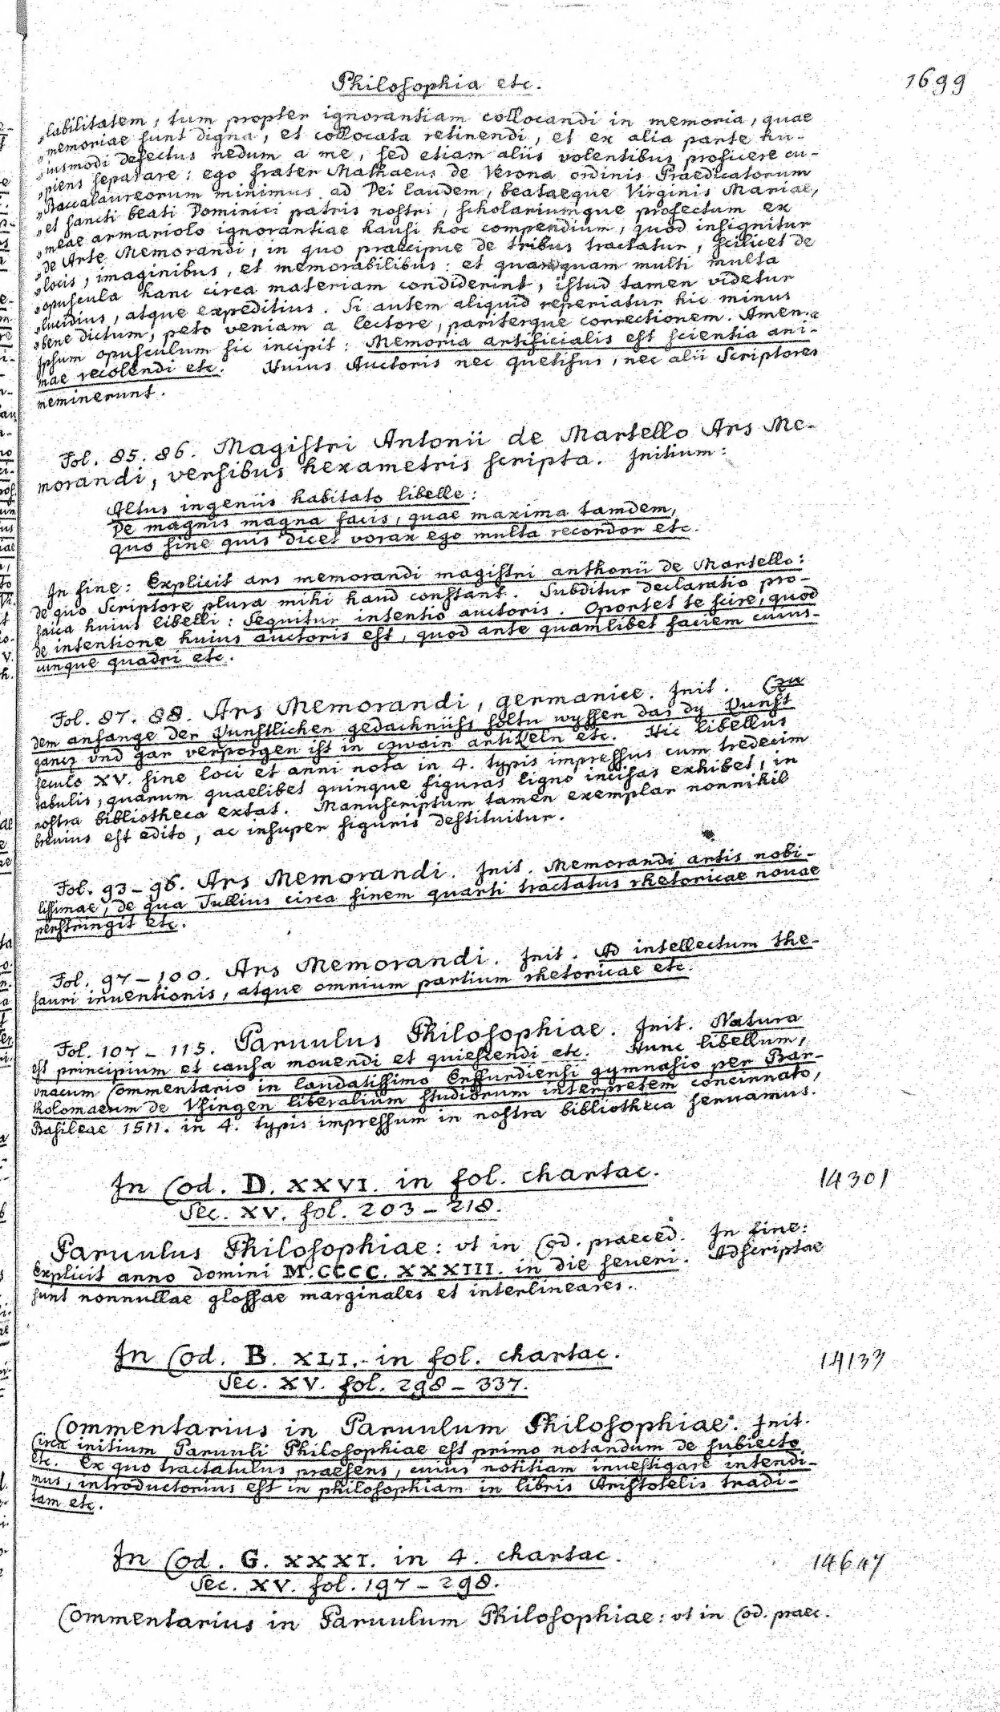 Philosophia etc.
1699
„labilitatem, tum propter ignorantiam collocandi in memoria, quae
„memoriae sunt digna, et collocata retinendi, et ex alia parte hu-
„iusmodi defectus nedum a me, sed etiam aliis volentibus proficere cu-
„piens separare: ego frater Mathaeus de Verona ordinis Praedicatorum
„Baccalaureorum minimus ad Dei laudem, beataeque Virginis Mariae,
„et sancti beati Dominici patris nostri, scholariumque profectum ex
„meae armariolo ignorantiae hausi hoc compendium, quod insignitur
„de Arte Memorandi, in quo praecipue de tribus tractatur, scilicet de
„locis, imaginibus, et memorabilibus: et quamquam multi multa
„opuscula hanc circa materiam condiderint, istud tamen videtur
„lucidius, atque expeditius. Si autem aliquid reperiatur hic minus
„bene dictum, peto veniam a lectore, pariterque correctionem. Amen„
Ipsum opusculum sic incipit: Memoria artificialis est scientia ani-
mae recolendi etc. Huius Auctoris nec Quetifus, nec alii Scriptores
meminerunt.
Fol. 85. 86. Magistri Antonii de Martello Ars Me-
morandi, versibus hexametris scripta. Initium:
Altus ingeniis habitato libelle:
De magnis magna facis, quae maxima tamdem,
quo sine quis dicet vorax ego multa recordor etc.
In fine: Explicit ars memorandi magistri anthonii de Martello:
de quo Scriptore plura mihi haud constant. Subditur declaratio pro-
saica huius libelli: Sequitur intentio auctoris. Oportet te scire, quod
de intentione huius auctoris est, quod ante quamlibet faciem cuius-
cunque quadri etc.
Fol. 87. 88. Ars Memorandi, germanice. Init. Czu
dem anfange der Kunstlichen gedachnüss soltu wyssen das dy Kunst
gancz und gar verporgen ist in czwain artikeln etc. Hic libellus
seculo XV. sine loci et anni nota in 4. typis impressus cum tredecim
tabulis, quarum quaelibet quinque figuras ligno incisas exhibet, in
nostra bibliotheca extat. Manuscriptum tamen exemplar nonnihil
brevius est edito, ac insuper figuris destituitur.
Fol. 93-96. Ars Memorandi. Init. Memorandi artis nobi-
lissimae, de qua Tullius circa finem quarti tractatus rhetoricae novae
perstringit etc.
Fol. 97-100. Ars Memorandi. Init. Ad intellectum the-
sauri inventionis, atque omnium partium rhetoricae etc.
Fol. 107-115. Parvulus Philosophiae. Init. Natura
est principium et causa movendi et quiescendi etc. Hunc libellum,
vnacum Commentario in laudatissimo Erffurdiensi gymnasio per Bar-
tholomaeum de Vsingen liberalium studiorum interpretem concinnato,
Basileae 1511. in 4. typis impressum in nostra bibliotheca servamus.
In Cod. D. XXVI. in fol. chartac.
14301
Sec. XV. fol. 203-218.
Parvulus Philosophiae: vt in Cod. praeced. In fine:
Explicit anno domini M.CCCC.XXXIII. in die severi. Adscriptae
sunt nonnullae glossae marginales et interlineares.
In Cod. B. XLI. in fol. chartac.
14133
Sec. XV. fol. 298-337.
Commentarius in Parvulum Philosophiae. Init.
Circa initium Parvuli Philosophiae est primo notandum de subiecto
etc. Ex quo tractatulus praesens, cuius notitiam investigare intendi-
mus, introductorius est in philosophiam in libris Aristotelis tradi-
tam etc.
In Cod. G. XXXI. in 4. chartac.
14647
Sec. XV. fol. 197-298.
Commentarius in Parvulum Philosophiae: vt in Cod. praec.